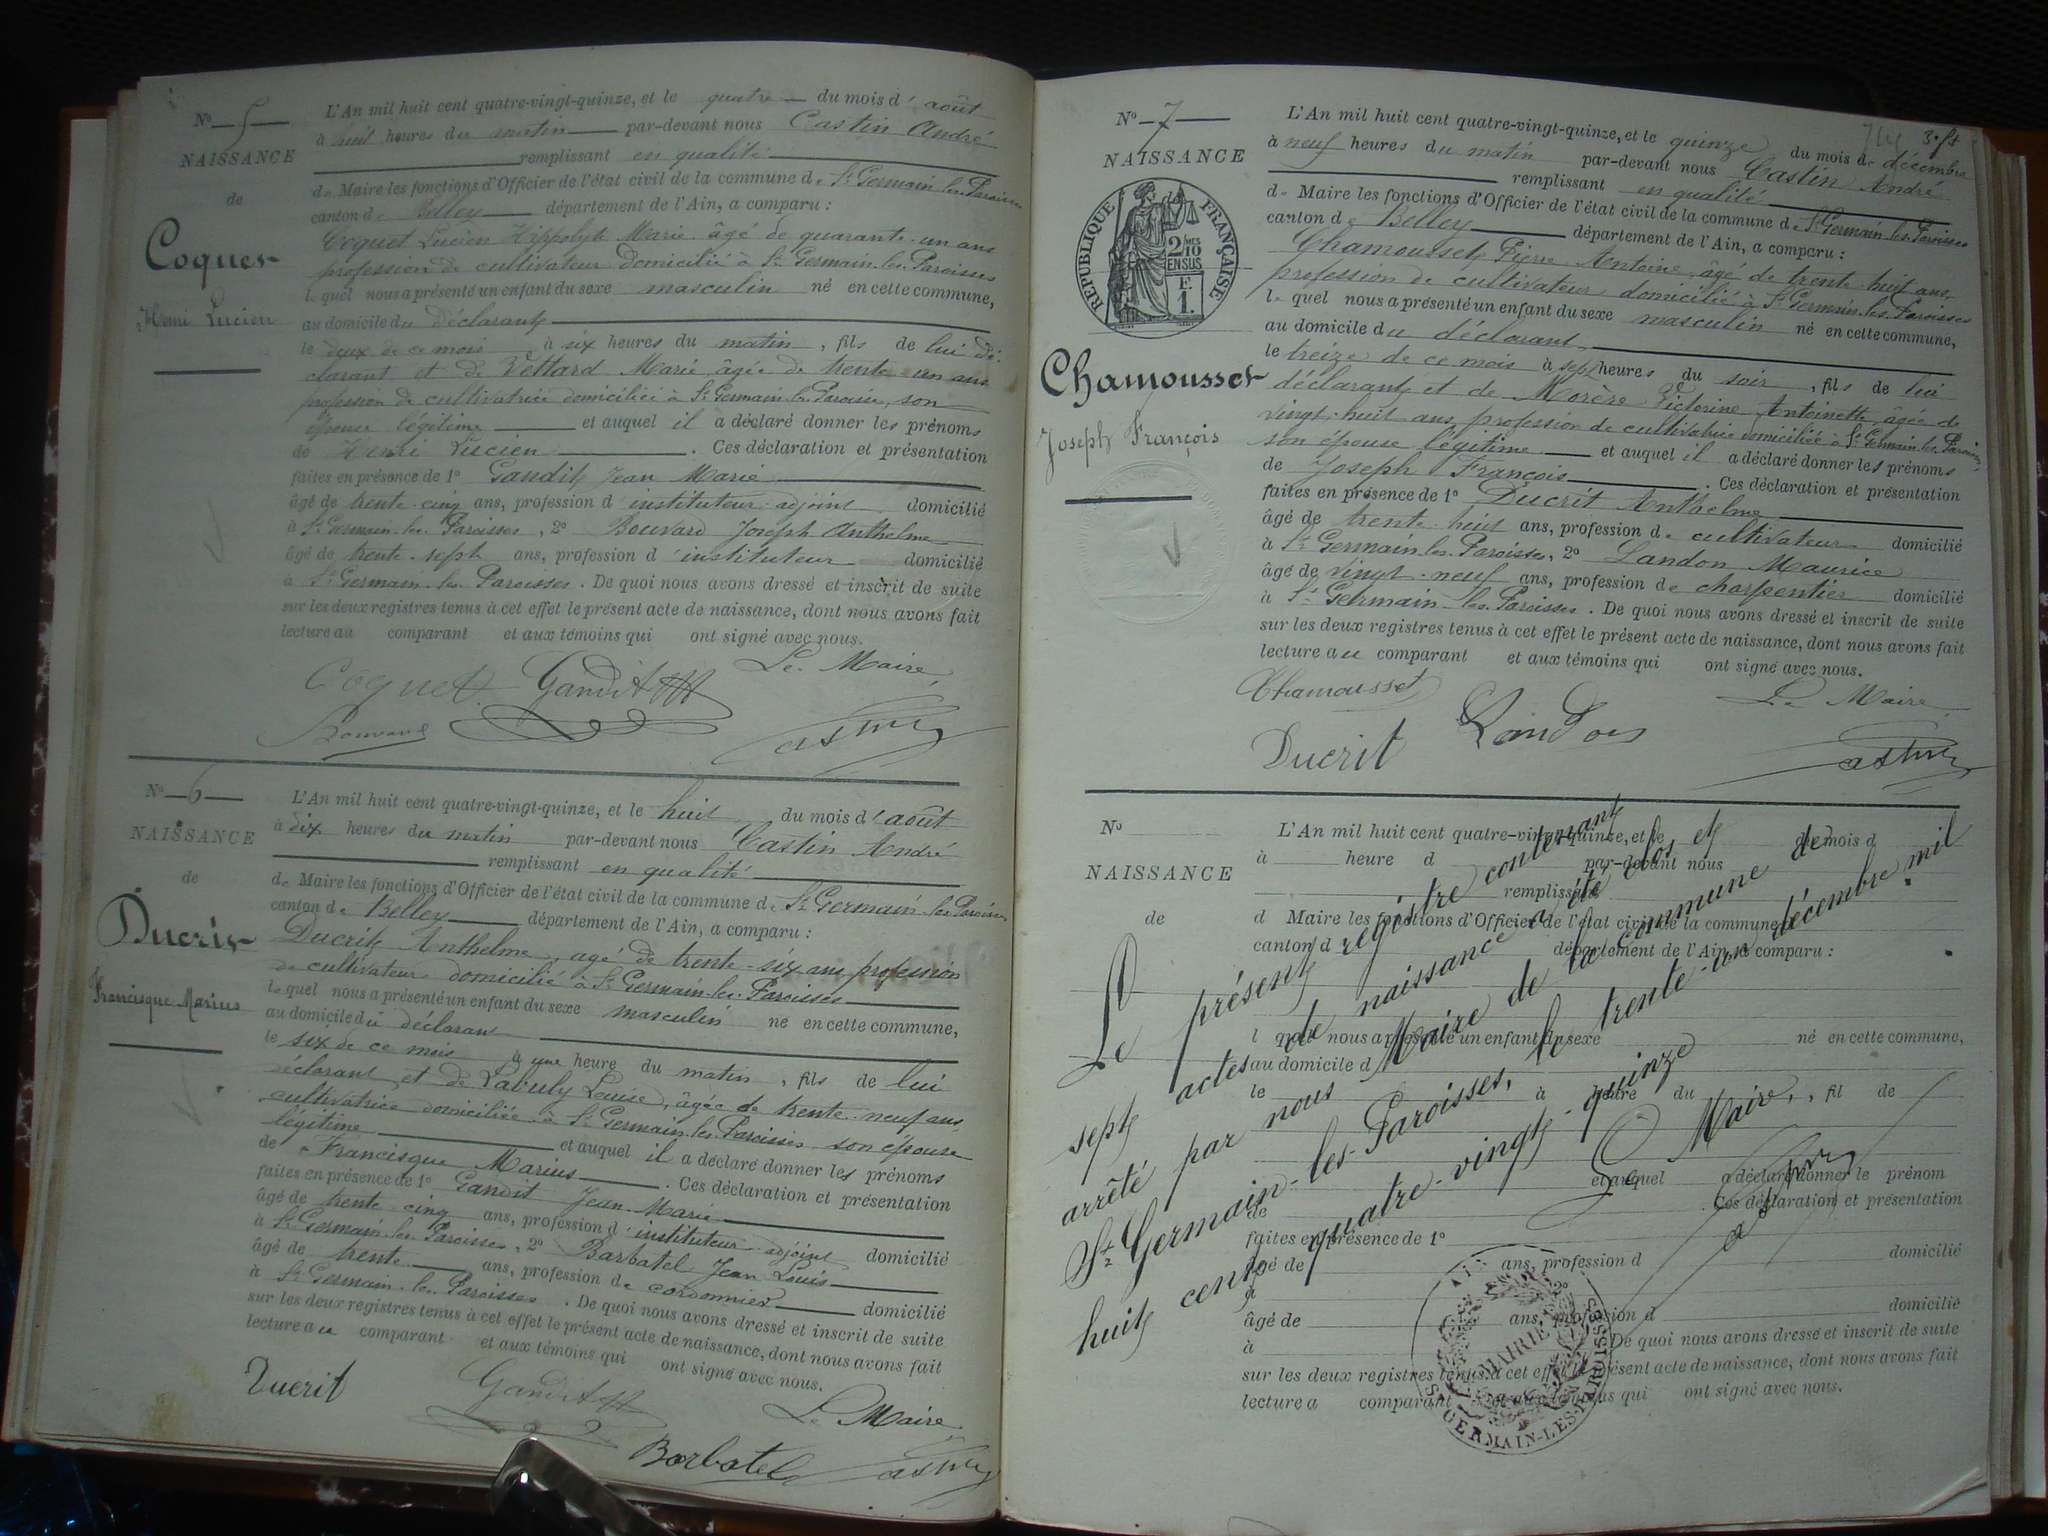 N° 5
NAISSANCE
de
Coquet
Henri Lucien
L'An mil huit cent quatre-vingt-quinze, et le quatre du mois d'août
à huit heures du matin par-devant nous Castin André
remplissant en qualité
de Maire les fonctions d'Officier de l'état civil de la commune de St Germain-les-Paroisses
canton de Belley département de l'Ain, a comparu :
Coquet Lucien Hippolyte Marie âgé de quarante-un ans
profession de cultivateur domicilié à St Germain-les-Paroisses
lequel nous a présenté un enfant du sexe masculin né en cette commune,
au domicile du déclarant
le deux de ce mois à six heures du matin, fils de lui dé-
clarant et de Vettard Marie âgée de trente-un ans
profession de cultivatrice domiciliée à St Germain-les-Paroisses, son
épouse légitime et auquel il a déclaré donner les prénoms
de Henri Lucien. Ces déclaration et présentation
faites en présence de 1° Gandit Jean Marie
âgé de trente-cinq ans, profession d'instituteur-adjoint domicilié
à St Germain-les-Paroisses, 2° Bouvard Joseph Anthelme
âgé de trente-sept ans, profession d'instituteur domicilié
à St Germain-les-Paroisses. De quoi nous avons dressé et inscrit de suite
sur les deux registres tenus à cet effet le présent acte de naissance, dont nous avons fait
lecture au comparant et aux témoins qui ont signé avec nous.
Le Maire,
Coquet Gandit
Bouvard Castin
N° 6
NAISSANCE
de
Ducrit
Francisque Marius
L'An mil huit cent quatre-vingt-quinze, et le huit du mois d'août
à dix heures du matin par-devant nous Castin André
remplissant en qualité
de Maire les fonctions d'Officier de l'état civil de la commune de St Germain-les-Paroisses
canton de Belley département de l'Ain, a comparu :
Ducrit Anthelme, agé de trente-six ans, profession
de cultivateur domicilié à St Germain-les-Paroisses
lequel nous a présenté un enfant du sexe masculin né en cette commune,
au domicile du déclarant
le six de ce mois à une heure du matin, fils de lui
déclarant et de Labully Louise, âgée de trente-neuf ans,
cultivatrice domiciliée à St Germain-les-Paroisses son épouse
légitime et auquel il a déclaré donner les prénoms
de Francisque Marius. Ces déclaration et présentation
faites en présence de 1° Gandit Jean-Marie
âgé de trente cinq ans, profession d'instituteur-adjoint domicilié
à St Germain-les-Paroisses, 2° Barbatel Jean Louis
âgé de trente ans, profession de cordonnier domicilié
à St Germain-les-Paroisses. De quoi nous avons dressé et inscrit de suite
sur les deux registres tenus à cet effet le présent acte de naissance, dont nous avons fait
lecture au comparant et aux témoins qui ont signé avec nous.
Ducrit Gandit Le Maire
Barbatel Castin
N° 7
NAISSANCE
RÉPUBLIQUE FRANÇAISE
2/10 MES
EN SUS
F.
1.
Chamousset
Joseph François
L'An mil huit cent quatre-vingt-quinze, et le quinze du mois de décembre
à neuf heures du matin par-devant nous Castin André
remplissant en qualité
de Maire les fonctions d'Officier de l'état civil de la commune de St Germain-les-Paroisses
canton de Belley département de l'Ain, a comparu :
Chamousset Pierre Antoine, âgé de trente-huit ans,
profession de cultivateur domicilié à St Germain-les-Paroisses
lequel nous a présenté un enfant du sexe masculin né en cette commune,
au domicile du déclarant
le treize de ce mois à sept heures du soir, fils de lui
déclarant et de Morère Victorine Antoinette âgée de
vingt-huit ans, profession de cultivatrice domiciliée à St Germain-les-Paroisses,
son épouse légitime et auquel il a déclaré donner les prénoms
de Joseph François. Ces déclaration et présentation
faites en présence de 1° Ducrit Anthelme
âgé de trente-huit ans, profession de cultivateur domicilié
à St Germain-les-Paroisses, 2° Landon Maurice
âgé de vingt-neuf ans, profession de charpentier domicilié
à St Germain-les-Paroisses. De quoi nous avons dressé et inscrit de suite
sur les deux registres tenus à cet effet le présent acte de naissance, dont nous avons fait
lecture au comparant et aux témoins qui ont signé avec nous.
Chamousset Le Maire
Ducrit Landon Castin
N°
NAISSANCE
de
L'An mil huit cent quatre-vingt-quinze, et le du mois d
à heure d par-devant nous
remplissant
d Maire les fonctions d'Officier de l'état civil de la commune d
canton d département de l'Ain, a comparu :
l quel nous a présenté un enfant du sexe né en cette commune,
au domicile d
le à heure du , fil de
et auquel a déclaré donner le prénom
de . Ces déclaration et présentation
faites en présence de 1°
âgé de ans, profession d domicilié
à 2°
âgé de ans, profession d domicilié
à De quoi nous avons dressé et inscrit de suite
sur les deux registres tenus à cet effet le présent acte de naissance, dont nous avons fait
lecture a comparant et aux témoins qui ont signé avec nous.
Le présent registre contenant
sept actes de naissance a été clos et
arrêté par nous Maire de la commune de
St Germain-les-Paroisses, le trente-un décembre mil
huit cent quatre-vingt-quinze
Le Maire,
Castin
MAIRIE
ST GERMAIN-LES-PAROISSES
AIN